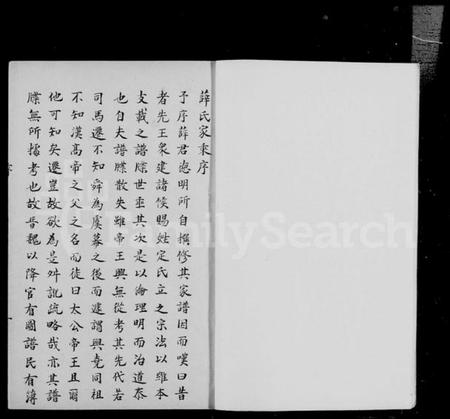 薛氏家乘序
予序薛君德明所自撰修其家譜因而嘆曰昔
者先王衆建諸侯賜姓定氏立之宗法以維本
支載之譜牒世垂其次是以倫理明而治道泰
也自夫譜牒散失雖帝王興無從考其先代若
司馬遷不知舜為虞幕之後而遽謂與堯同祖
不知漢高帝之父之名而徒曰太公帝王且爾
他可知矣遷豈故欲為是舛訛疏略哉亦其譜
牒無所據考也故晉魏以降官有圖譜民有簿
FamilySearch